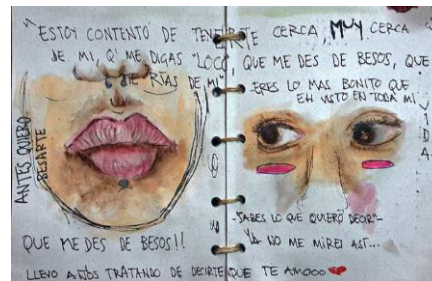 "ESTOY CONTENTO DE TENERTE CERCA, MUY CERCA
DE MI, Q' ME DIGAS "LOCO", QUE ME DES DE BESOS, QUE
TE RIAS DE MI"
-ERES LO MAS BONITO QUE
EH VISTO EN TODA MI
VIDA
ANTES QUIERO
BESARTE
-SABES LO QUE QUIERO DECIR"-
YA NO ME MIRES ASÍ...
QUE ME DES DE BESOS!!
LLEVO AÑOS TRATANDO DE DECIRTE QUE TE AMOOO